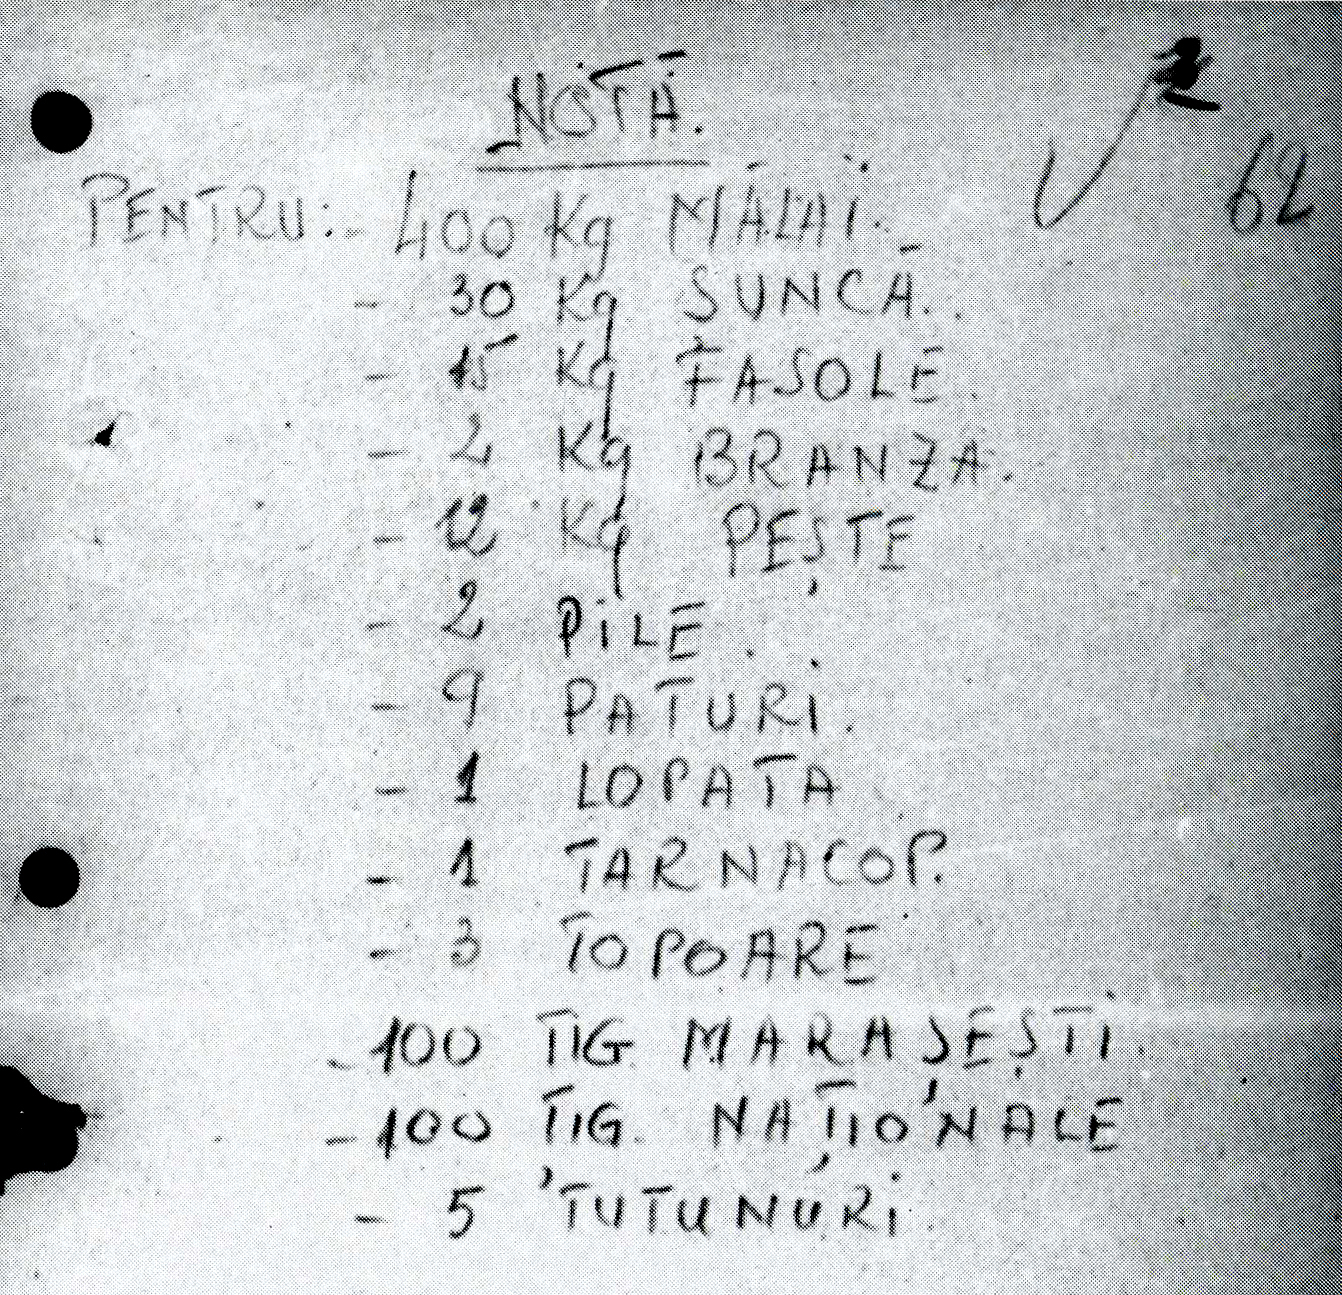 NOTĂ.
62
PENTRU:- 400 Kg MĂLAI.
- 30 Kg ȘUNCĂ.
- 15 Kg FASOLE.
- 2 Kg BRANZĂ.
- 12 Kg PEȘTE
- 2 PILE.
- 9 PATURI.
- 1 LOPATA
- 1 TARNACOP.
- 3 TOPOARE
- 100 ȚIG. MARAȘEȘTI.
- 100 ȚIG. NAȚIONALE
- 5 TUTUNURI.